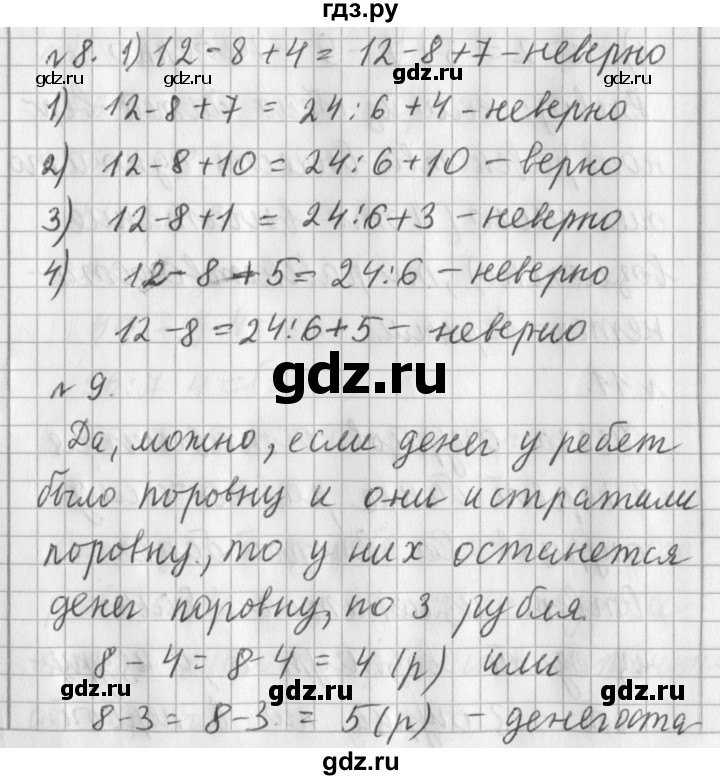 гдз.ру
№8. 1) 12-8+4= 12-8+7-неверно
gdz.ru gdz.ru gdz.ru
1) 12-8+7 = 24:6+4-неверно
2) 12-8+10=24:6+10-верно
gdz.ru gdz.ru
3) 12-8+1 = 24:6+3-неверно
4) 12-8+5=24:6-неверно
gdz.ru gdz.ru
12-8=24:6+5-неверно
gdz.ru
№9.
Да, можно, если денег у ребет
gdz.ru gdz.ru
было поровну и они истратили
поровну, то у них останется
gdz.ru
денег поровну, по 3 рубля.
8-4=8-4=4(р) или
gdz.ru gdz.ru
8-3=8-3.=5(р)-денегоста
gdz.ru gdz.ru
gdz.ru